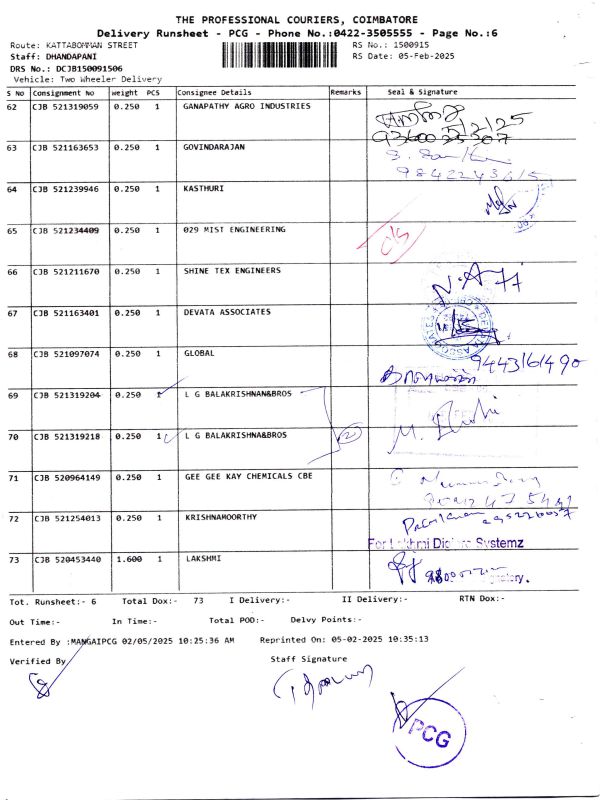 THE PROFESSIONAL COURIERS, COIMBATORE
Delivery Runsheet - PCG - Phone No.:0422-3505555 - Page No.:6
Route: KATTABOMMAN STREET RS No.: 1500915
Staff: DHANDAPANI RS Date: 05-Feb-2025
DRS No.: DCJB150091506
Vehicle: Two Wheeler Delivery
S No Consignment No weight PCS Consignee Details Remarks Seal & Signature
62 CJB 521319059 0.250 1 GANAPATHY AGRO INDUSTRIES
63 CJB 521163653 0.250 1 GOVINDARAJAN
64 CJB 521239946 0.250 1 KASTHURI
65 CJB 521234409 0.250 1 029 MIST ENGINEERING
66 CJB 521211670 0.250 1 SHINE TEX ENGINEERS
67 CJB 521163401 0.250 1 DEVATA ASSOCIATES
68 CJB 521097074 0.250 1 GLOBAL
9443161490
69 CJB 521319204 0.250 1 L G BALAKRISHNAN&BROS
70 CJB 521319218 0.250 1 L G BALAKRISHNA&BROS 2
71 CJB 520964149 0.250 1 GEE GEE KAY CHEMICALS CBE
72 CJB 521254013 0.250 1 KRISHNAMOORTHY
For Lakhmi Systemz
73 CJB 520453440 1.600 1 LAKSHMI
Tot. Runsheet:- 6 Total Dox:- 73 I Delivery:- II Delivery:- RTN Dox:-
Out Time:- In Time:- Total POD:- Delvy Points:-
Entered By :MANGAIPCG 02/05/2025 10:25:36 AM Reprinted On: 05-02-2025 10:35:13
Verified By Staff Signature
PCG